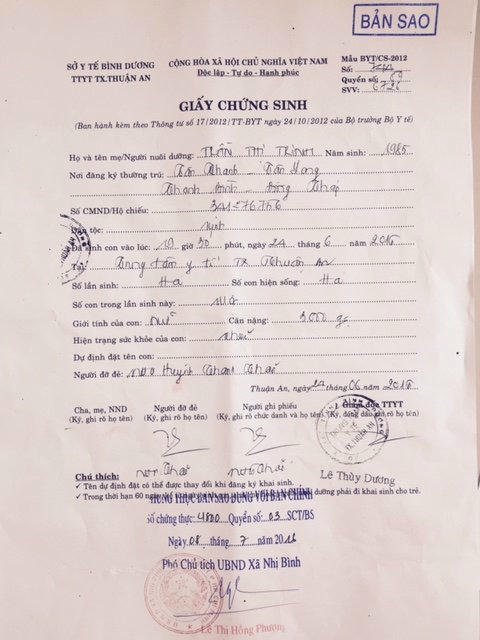 BẢN SAO
SỞ Y TẾ BÌNH DƯƠNG
TTYT TX.THUẬN AN
CỘNG HÒA XÃ HỘI CHỦ NGHĨA VIỆT NAM
Độc lập - Tự do - Hạnh phúc
Mẫu BYT/CS-2012
Số:
Quyển số: 69
SVV: 6726
GIẤY CHỨNG SINH
(Ban hành kèm theo Thông tư số 17/2012/TT-BYT ngày 24/10/2012 của Bộ trưởng Bộ Y tế)
Họ và tên mẹ/Người nuôi dưỡng: TRẦN THỊ TRINH Năm sinh: 1985
Nơi đăng ký thường trú: Tân Thạnh - Tân
Thanh Bình - Đồng Tháp
Số CMND/Hộ chiếu: 341276756
Dân tộc: Kinh
Đã sinh con vào lúc: 10 giờ 30 phút, ngày 24 tháng 6 năm 2016
Tại: Trung tâm y tế TX Thuận An
Số lần sinh: Số con hiện sống:
Số con trong lần sinh này: một
Giới tính của con: nữ Cân nặng: 3000 g
Hiện trạng sức khỏe của con: khỏe
Dự định đặt tên con:
Người đỡ đẻ: Huỳnh Thanh
Thuận An, ngày 24 tháng 06 năm 2016
Cha, mẹ, NND
(Ký, ghi rõ họ tên)
Người đỡ đẻ
(Ký, ghi rõ họ tên)
Người ghi phiếu
(Ký, ghi rõ chức danh và họ tên)
Giám đốc TTYT
(Ký, đóng dấu, ghi rõ họ tên)
Lê Thùy Dương
Chú thích:
✓ Tên dự định đặt có thể được thay đổi khi đăng ký khai sinh.
✓ Trong thời hạn 60 ngày, dưỡng phải đi khai sinh cho trẻ.
CHỨNG THỰC BẢN SAO ĐÚNG VỚI BẢN CHÍNH
số chứng thực: 4800 Quyển số: 03 SCT/BS
Ngày 08 tháng 7 năm 2016
Phó Chủ tịch UBND Xã Nhị Bình
Lê Thị Hồng Phương